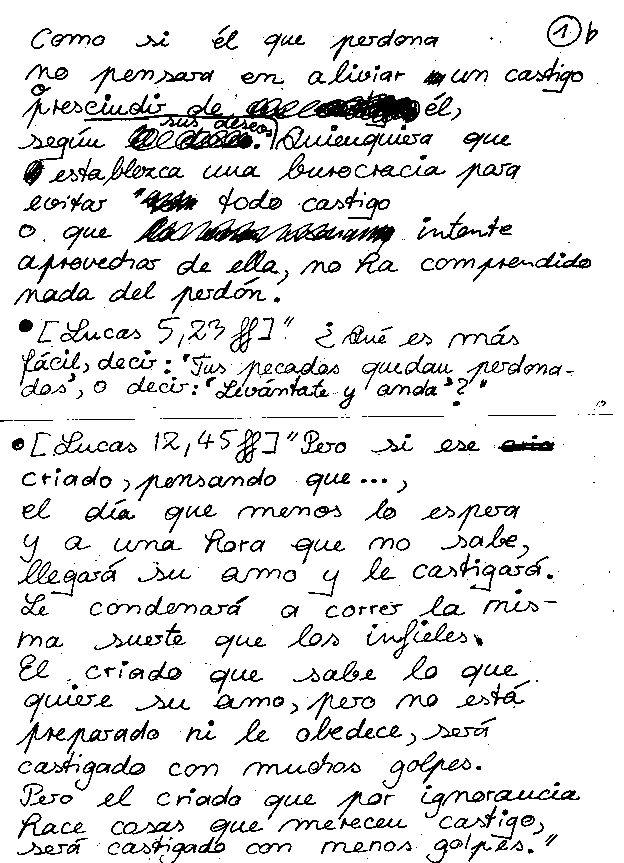 Como si él que perdona 1 b
no pensara en aliviar un castigo
o
prescindir de él,
sus deseos
según . Quienquiera que
establezca una burocracia para
evitar todo castigo
o que intente
aprovechar de ella, no ha comprendido
nada del perdón.
• [Lucas 5,23 ff] " ¿Qué es más
fácil, decir: 'Tus pecados quedan perdona-
dos', o decir: 'Levántate y anda'?"
• [Lucas 12,45 ff] "Pero si ese
criado, pensando que...,
el día que menos lo espera
y a una hora que no sabe,
llegará su amo y le castigará.
Le condenará a correr la mis-
ma suerte que los infieles.
El criado que sabe lo que
quiere su amo, pero no está
preparado ni le obedece, será
castigado con muchos golpes.
Pero el criado que por ignorancia
hace cosas que merecen castigo,
será castigado con menos golpes."